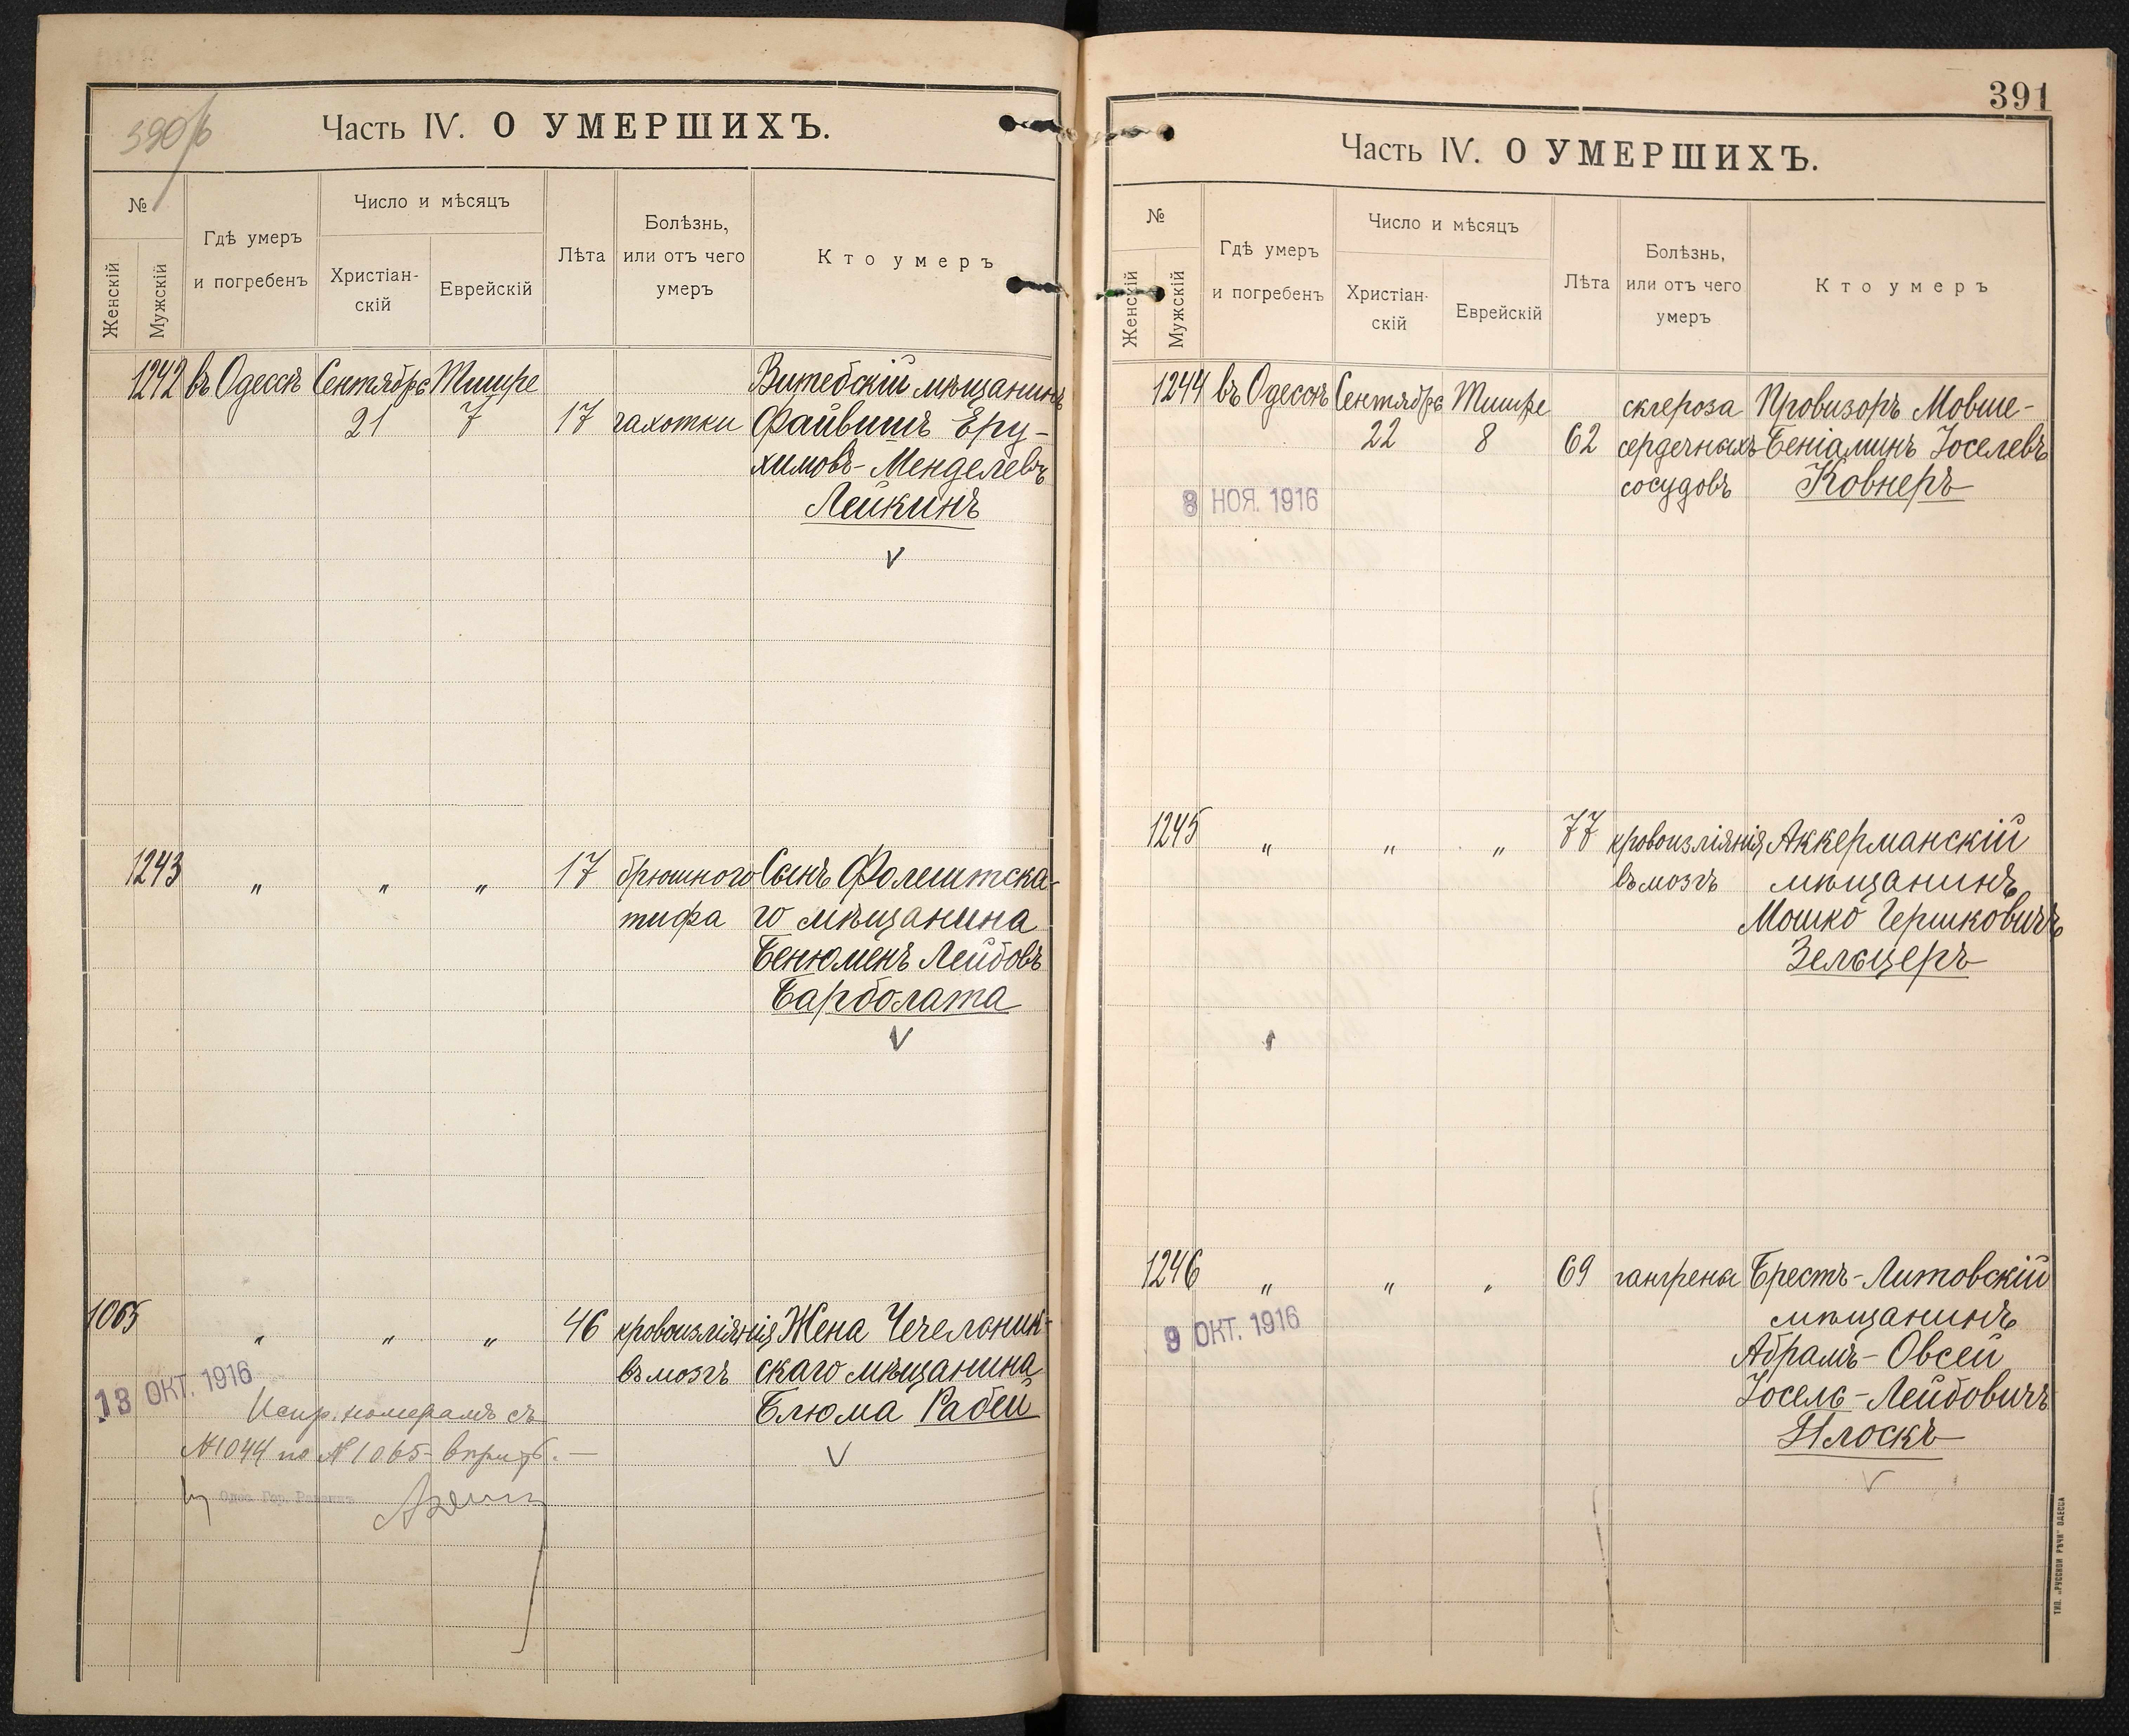 390/б
Часть IV. О УМЕРШИХЪ.
№
Женскій
Мужскій
Гдѣ умеръ
и погребенъ
Число и мѣсяцъ
Христіан-
скій
Еврейскій
Лѣта
Болѣзнь,
или отъ чего
умеръ
Кто умеръ
1242 въ Одессѣ Сентябрь Тишре Витебскій мѣщанинъ
21 7 17 чахотки Файвишъ Еру-
химовъ-Менделевъ
Лейкинъ
1243 " " " 17 брюшного Сынъ Фалештска-
тифа го мѣщанина
Бенюменъ Лейбовъ
Барболата
1065 " " " 46 кровоизліянія Жена Чечельник-
въ мозгъ скаго мѣщанина
Блюма Рабей
13 ОКТ. 1916
Испр. номерамъ съ
№1044 по №1065-
Одес. Гор. Раввинъ
391
Часть IV. О УМЕРШИХЪ.
№
Женскій
Мужскій
Гдѣ умеръ
и погребенъ
Число и мѣсяцъ
Христіан-
скій
Еврейскій
Лѣта
Болѣзнь,
или отъ чего
умеръ
Кто умеръ
1244 въ Одессѣ Сентябрь Тишре склероза Провизоръ Мовше-
22 8 62 сердечныхъ Беніаминъ Іоселевъ
сосудовъ Ковнеръ
8 НОЯ. 1916
1245 " " " 77 кровоизліянія Аккерманскій
въ мозгъ мѣщанинъ
Мошко Гершковичъ
Зельцеръ
1246 " " " 69 гангрены Брестъ-Литовскій
мѣщанинъ
9 ОКТ. 1916
Абрамъ-Овсей
Іосель-Лейбовичъ
Плоскъ
ТИП. „РУССКОЙ РѢЧИ" ОДЕССА